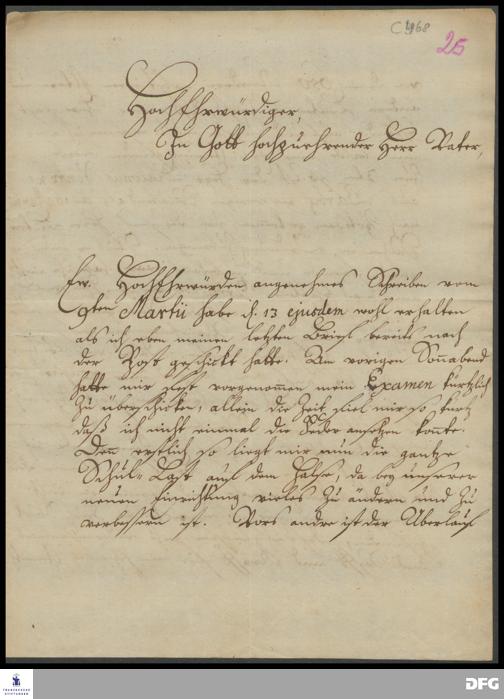 C 468
25
HochEhrwürdiger,
In Gott hochzuehrender Herr Vater,
Ew. HochEhrwürden angenehmes Schreiben vom
9ten Martii habe d. 13 ejusdem wohl erhalten
als ich eben meinen letzten Brief bereits nach
der Post geschickt hatte. Am vorigen Sonnabend
hatte mir fest vorgenommen mein Examen kürtzlich
zu überschicken, allein die Zeit fiel mir so kurtz
daß ich nicht einmal die Feder ansetzen konte.
Denn erstlich so liegt mir nun die gantze
Schul-Last auf dem Halse, da bey unserer
neuen Einrichtung vieles zu ändern und zu
verbessern ist. Vors andre ist der Uberlauf
FRANCKESCHE
STIFTUNGEN
DFG